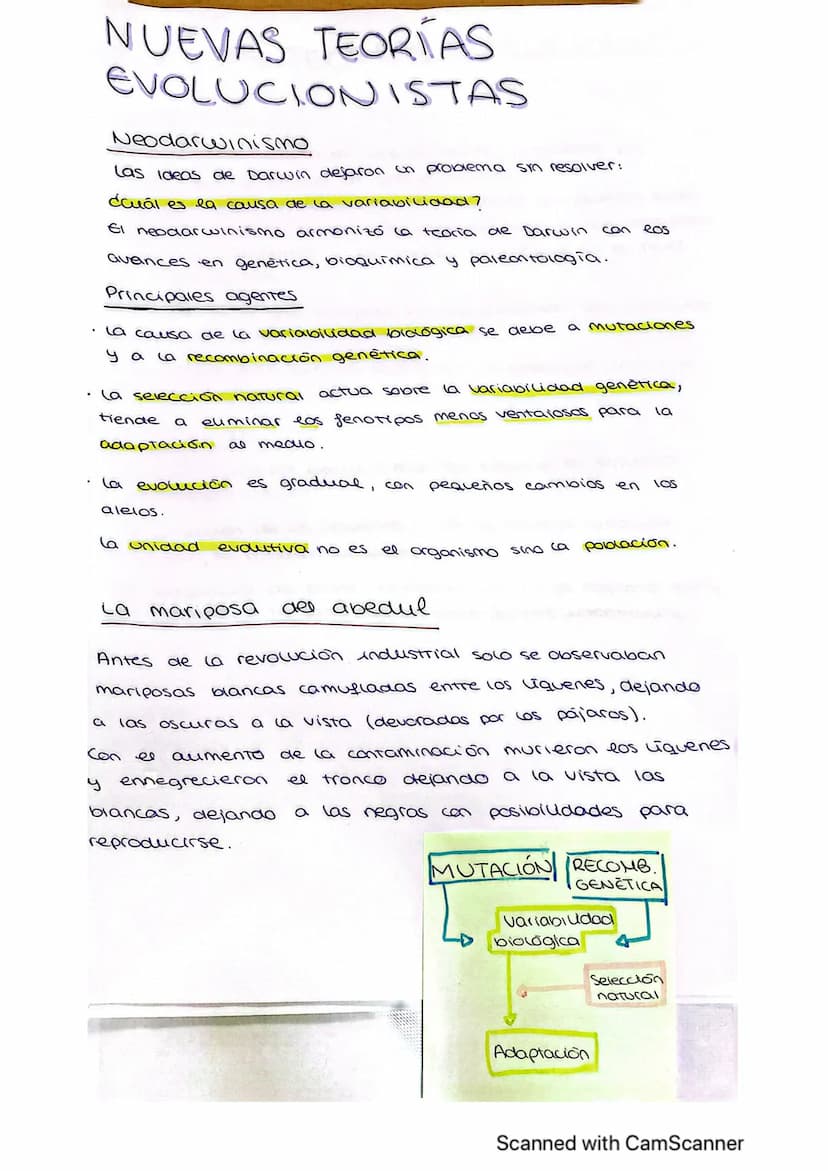 NUEVAS TEORÍAS
EVOLUCIONISTAS
Neodarwinismo
Las ideas de Darwin dejaron un problema sin resolver:
¿cuál es la causa de la variabilidad?
El neodarwinismo armonizó la teoría de Darwin con los
avances en genética, bioquímica y paleontología.
Principales agentes
· La causa de la variabilidad biológica se debe a mutaciones
y a la recombinación genética.
· La selección natural actua sobre la variabilidad genética,
tiende a eliminar los fenotipos menos ventajosos para la
adaptación al medio.
· La evolución es gradual, con pequeños cambios en los
alelos.
La unidad evolutiva no es el organismo sino la población.
La mariposa del abedul
Antes de la revolución industrial solo se observaban
mariposas blancas camufladas entre los líquenes, dejando
a las oscuras a la vista (devoradas por los pájaros).
Con el aumento de la contaminación murieron los líquenes
y ennegrecieron el tronco dejando a la vista las
blancas, dejando a las negras con posibilidades para
reproducirse.
MUTACIÓN
RECOMB.
GENÉTICA
Variabilidad
biológica
Selección
natural
Adaptación
Scanned with CamScanner